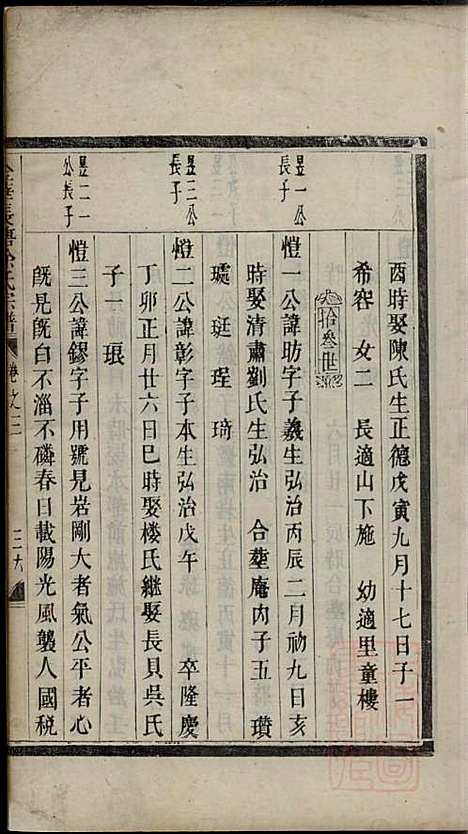 酉時娶陳氏生正德戊寅九月十七日子一
希容　女二　長適山下施　幼適里童樓
拾叁世
昱一公長子
愷一公諱昉字子羲生弘治丙辰二月初九日亥
時娶清肅劉氏生弘治　合塟庵内子五　瓚
璩　珽　珵　琦
昱二公長子
愷二公諱彰字子本生弘治戊午　卒隆慶
丁卯正月廿六日巳時娶楼氏継娶長貝吳氏
子一　琅
昱二一公長子
愷三公諱鏐字子用號見岩剛大者氣公平者心
既見既白不淄不磷春日載陽光風襲人國税
氏宗譜
卷之二
三十九